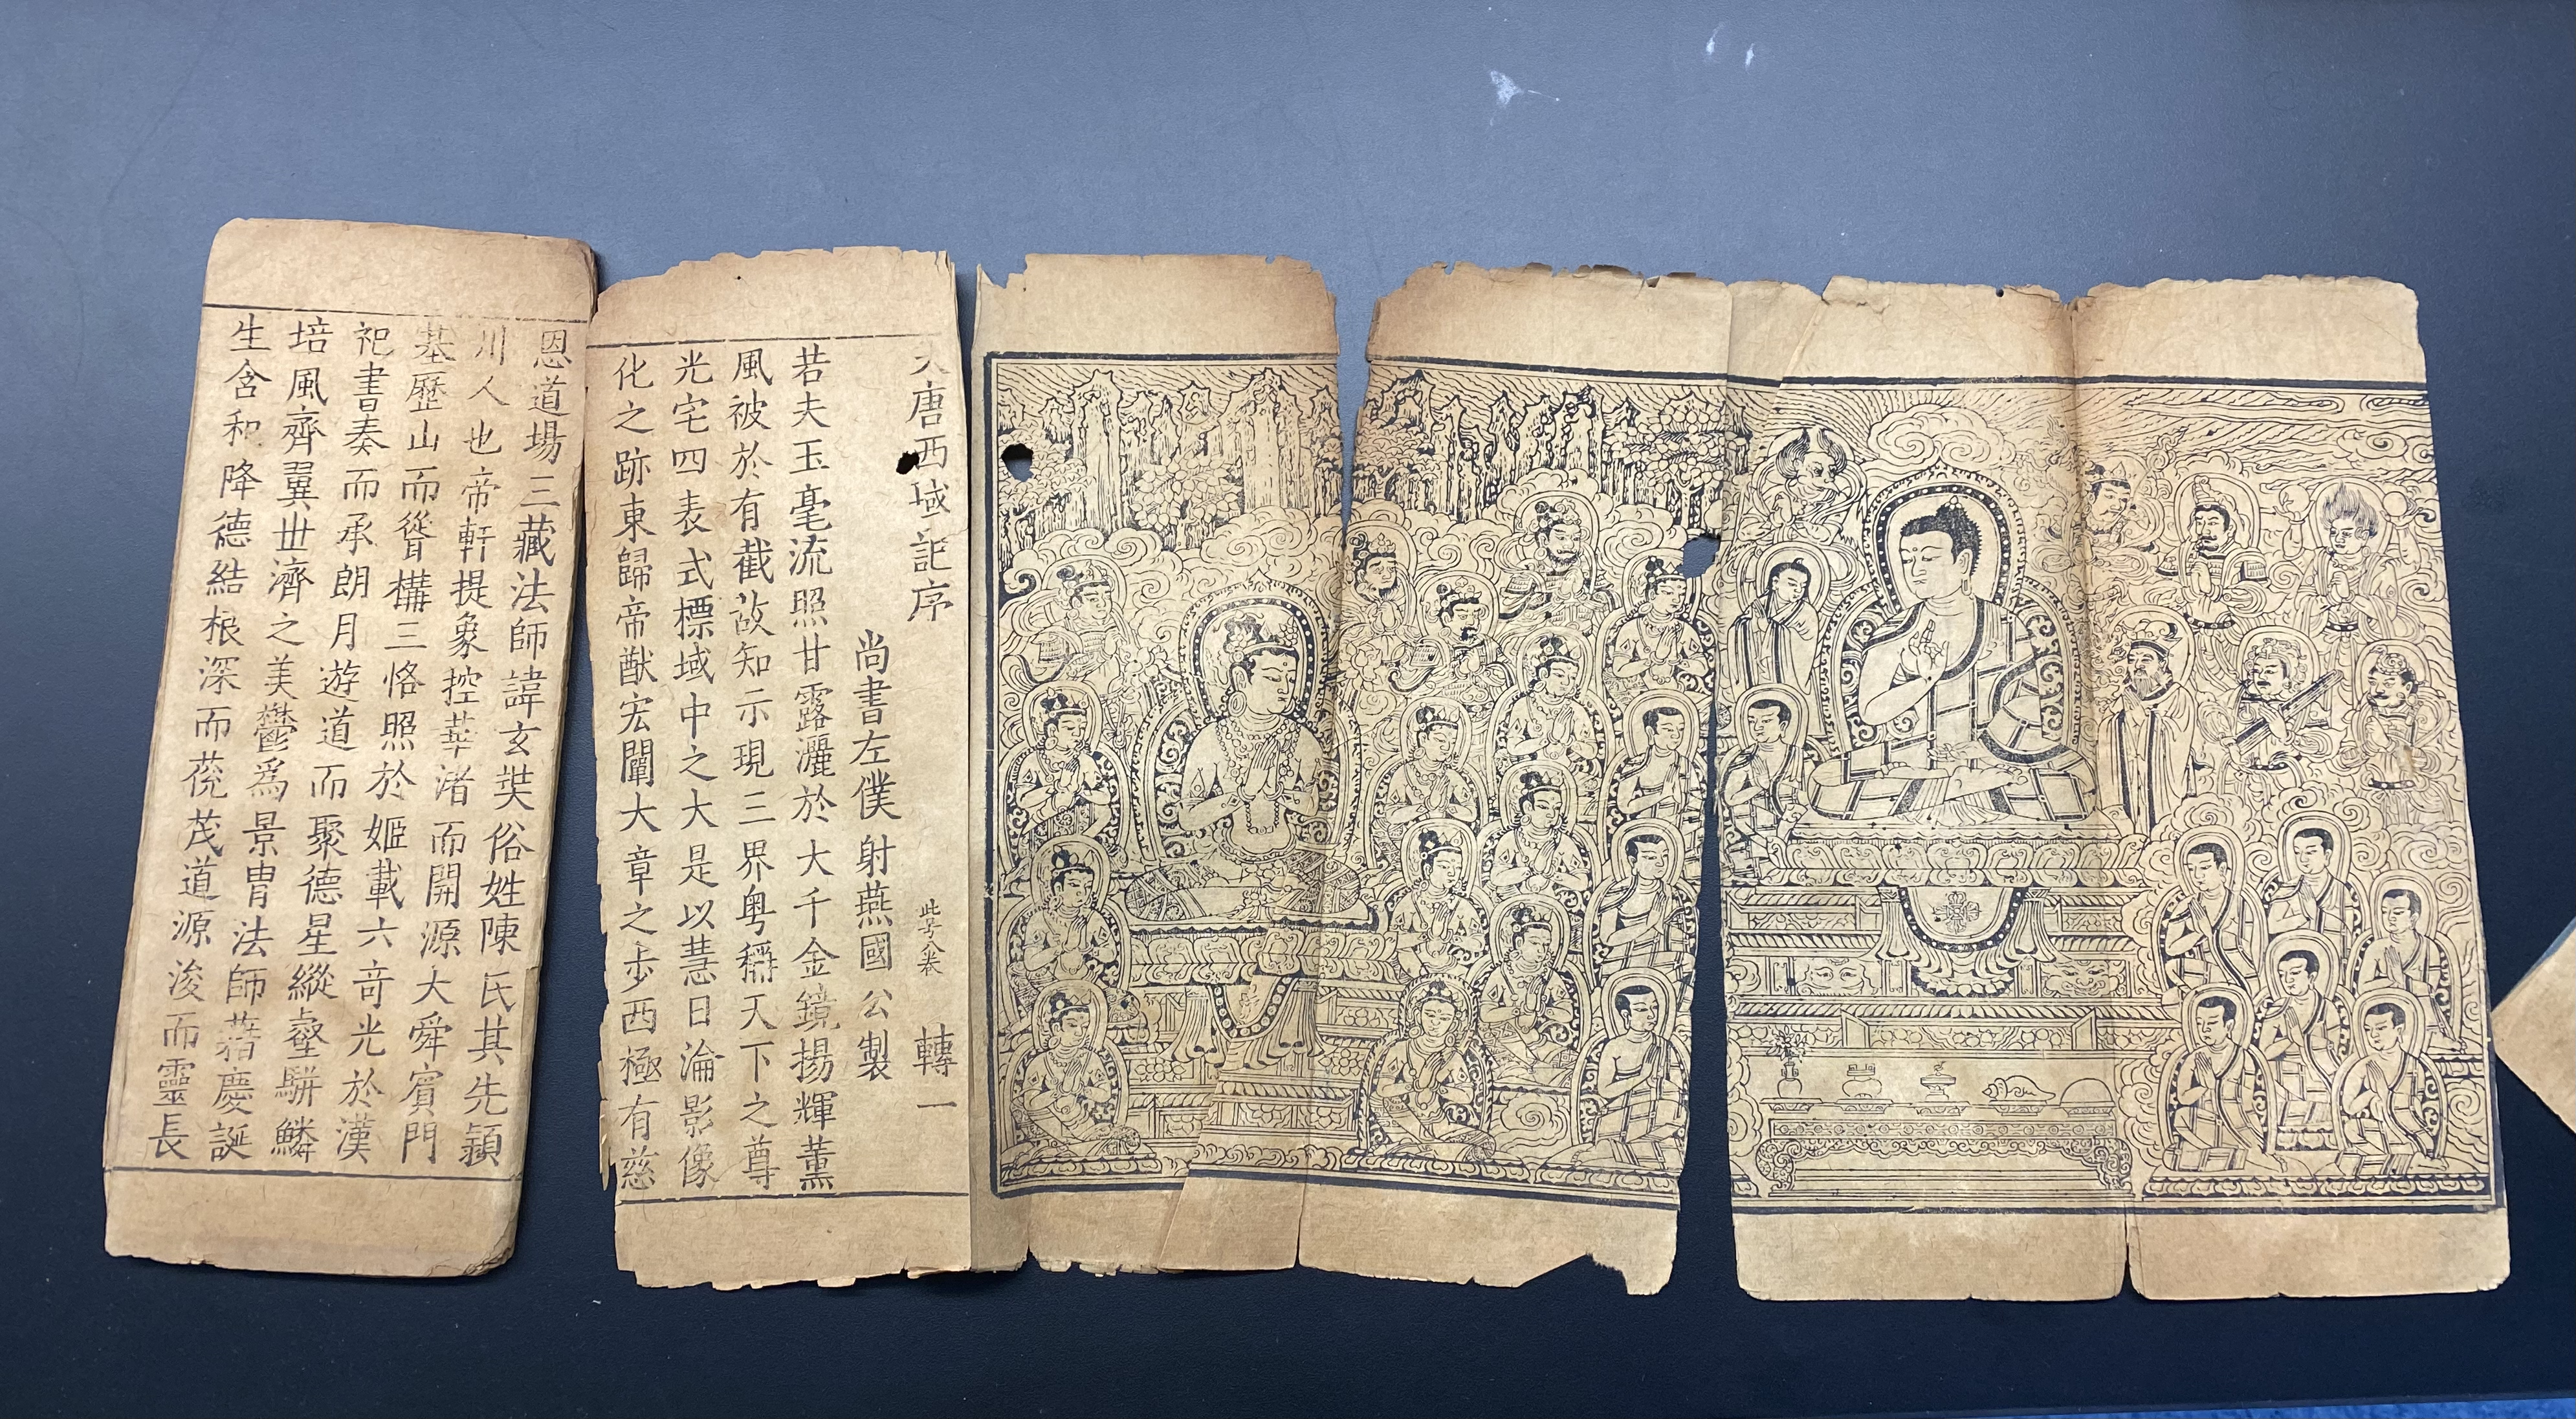 大唐西域記序 此字八卷 轉一
尚書左僕射燕國公製
若夫玉毫流照甘露灑於大千金鏡揚輝薰
風被於有截故知示現三界粤稱天下之尊
光宅四表式標域中之大是以慧日淪影像
化之跡東歸帝猷宏闡大章之步西極有慈
恩道場三藏法師諱玄奘俗姓陳氏其先潁
川人也帝軒提象控華渚而開源大舜賓門
基歷山而聳構三恪照於姬載六奇光於漢
祀書奏而承朗月遊道而聚德星縱壑駢鱗
培風齊翼世濟之美鬱爲景胄法師藉慶誕
生含和降德結根深而䓯茂道源浚而靈長